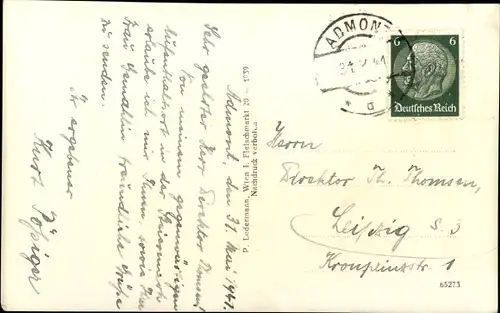 Admont, den 31. Mai 1941.
Sehr geehrter Herr Direktor Thomsen!
Von meinem gegenwärtigen
Aufenthaltsort in der Steiermark
erlaube ich mir Ihnen sowie Ihrer
Frau Gemahlin freundliche Grüße
zu senden.
Ihr ergebener
Kurt
P. Ledermann, Wien I, Fleischmarkt 20 - 1939
Nachdruck verboten
ADMONT
a
6 6
Deutsches Reich
Herrn
Direktor Th. Thomsen,
Leipzig S. 3
Kronprinzstr. 1
65273